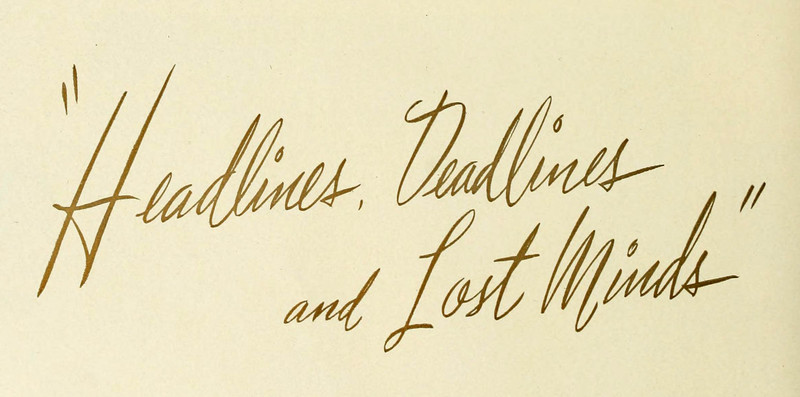 "Headlines, Deadlines
and Lost Minds"